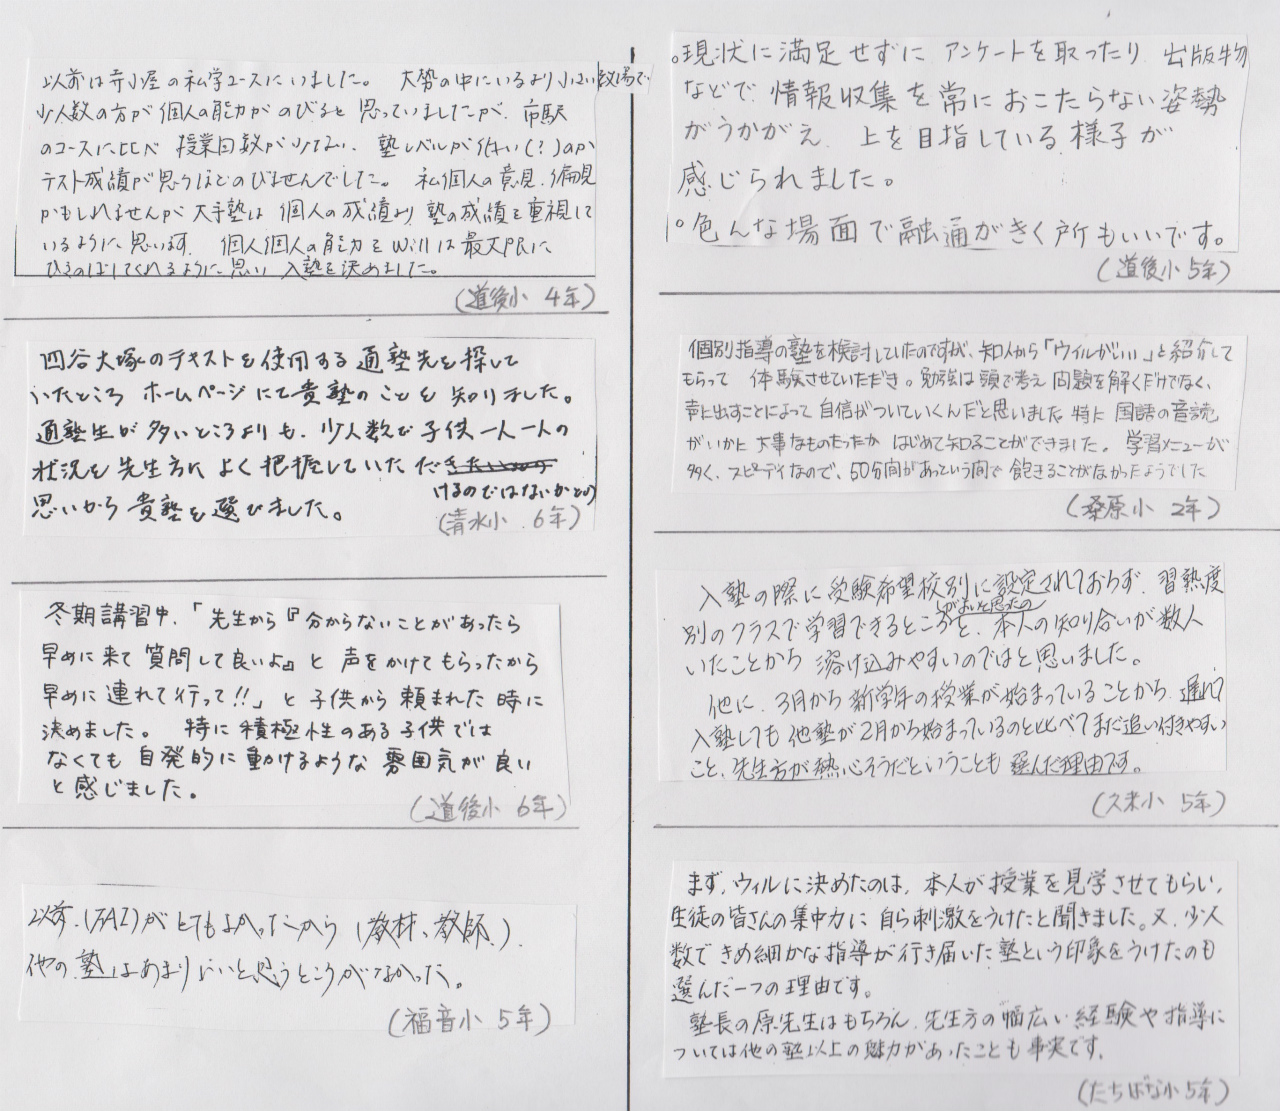 以前は寺小屋の私学コースにいました。 大勢の中にいるより小さい教場で
少人数の方が個人の能力がのびると思っていましたが、市駅
のコースに比べ 授業回数が少ない、塾レベルが低い(?)のか
テスト成績が思うほどのびませんでした。 私個人の意見、偏見
かもしれませんが 大手塾は 個人の成績より 塾の成績を重視して
いるように思います。 個人個人の能力をWillは最大限に
ひきのばしてくれるように思い 入塾を決めました。
(道後小 4年)
四谷大塚のテキストを使用する通塾先を探して
いたところ ホームページにて貴塾のことを知りました。
通塾生が多いところよりも、少人数で子供一人一人の
状況を先生方に よく把握していただ
けるのではないかとの
思いから貴塾を選びました。
(清水小 6年)
冬期講習中、「先生から『分からないことがあったら
早めに来て質問して良いよ』と 声をかけてもらったから
早めに連れて行って!!」と子供から頼まれた時に
決めました。 特に積極性のある子供では
なくても 自発的に動けるような 雰囲気が良い
と感じました。
(道後小 6年)
以前、(FAI)がとてもよかったから (教材、教師)。
他の塾はあまりよいと思うところがなかった。
(福音小 5年)
。現状に満足せずに アンケートを取ったり 出版物
などで 情報収集を常におこたらない姿勢
がうかがえ 上を目指している様子が
感じられました。
。色んな場面で融通がきく所もいいです。
(道後小 5年)
個別指導の塾を検討していたのですが、知人から「ウイルがいい」と紹介して
もらって 体験させていただき。勉強は頭で考え 問題を解くだけでなく、
声に出すことによって 自信がついていくんだと思いました 特に 国語の音読
がいかに 大事なものだったか はじめて知ることができました。 学習メニューが
多く、スピーディなので、50分間があっという間で 飽きることがなかったようでした
(桑原小 2年)
入塾の際に受験希望校別に設定されておらず、習熟度
がよいと思ったの
別のクラスで学習できるところと、本人の知り合いが数人
いたことから 溶け込みやすいのではと思いました。
他に、3月から新学年の授業が始まっていることから、遅れて
入塾しても 他塾が2月から始まっているのと比べてまだ追い付きやすい
こと、先生方が熱心そうだということも 選んだ理由です。
(久米小 5年)
まず、ウィルに決めたのは、本人が授業を見学させてもらい、
生徒の皆さんの集中力に自ら刺激をうけたと聞きました。又、少人
数できめ細かな指導が行き届いた塾という印象をうけたのも
選んだ一つの理由です。
塾長の原先生はもちろん、先生方の幅広い経験や指導に
ついては他の塾以上の魅力があったことも事実です。
(たちばな小5年)